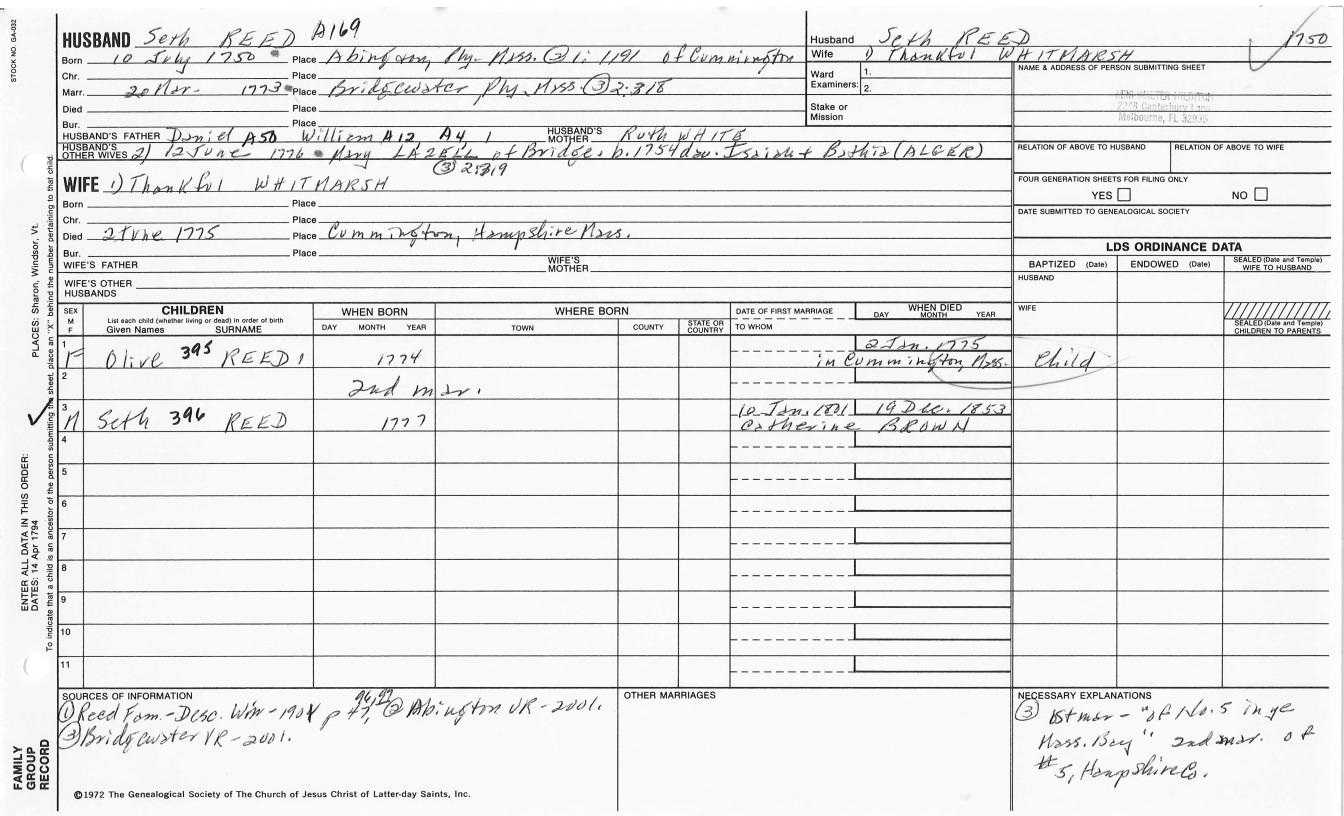 STOCK NO. GA-032
HUSBAND Seth REED A169
Born 10 July 1750 Place Abington, Ply. Mass. ② 1: 191 of Cummington
Chr. Place
Marr. 20 Mar- 1773 Place Bridgewater Ply. Mass. ③ 2:318
Died Place
Bur. Place
HUSBAND'S FATHER Daniel A50 William A12 A4, 1 HUSBAND'S MOTHER Ruth WHITE
HUSBAND'S OTHER WIVES 2) 12 June 1776 Mary LAZELL of Bridge. b. 1754 dau. Isaiah + Bathia (ALGER)
③ 2:319
WIFE 1) Thankful WHITMARSH
Born Place
Chr. Place
Died 2 June 1775 Place Cummington, Hampshire Mass.
Bur. Place
WIFE'S FATHER WIFE'S MOTHER
WIFE'S OTHER HUSBANDS
Husband Seth REED 1750
Wife 1) Thankful WHITMARSH
Ward Examiners: 1.
2.
Stake or Mission
NAME & ADDRESS OF PERSON SUBMITTING SHEET
2248 Canterbury Lane
Melbourne, FL 32935
RELATION OF ABOVE TO HUSBAND RELATION OF ABOVE TO WIFE
FOUR GENERATION SHEETS FOR FILING ONLY
YES NO
DATE SUBMITTED TO GENEALOGICAL SOCIETY
LDS ORDINANCE DATA
BAPTIZED (Date) ENDOWED (Date) SEALED (Date and Temple) WIFE TO HUSBAND
HUSBAND
WIFE
SEALED (Date and Temple) CHILDREN TO PARENTS
SEX M F CHILDREN List each child (whether living or dead) in order of birth Given Names SURNAME WHEN BORN DAY MONTH YEAR WHERE BORN TOWN COUNTY STATE OR COUNTRY DATE OF FIRST MARRIAGE TO WHOM WHEN DIED DAY MONTH YEAR
1 F Olive 395 REED 1 1774 2 Jan. 1775
in Cummington, Mass. Child
2 2nd mar.
3 M Seth 396 REED 1777 10 Jan. 1801 19 Dec. 1853
Catherine BROWN
4
5
6
7
8
9
10
11
PLACES: Sharon, Windsor, Vt.
ENTER ALL DATA IN THIS ORDER:
DATES: 14 Apr 1794
To indicate that a child is an ancestor of the person submitting the sheet, place an "X" behind the number pertaining to that child.
FAMILY GROUP RECORD
SOURCES OF INFORMATION
① Reed Fam.-Desc. Wm-1901 p 47, 96,97 ② Abington VR-2001.
③ Bridgewater VR-2001.
OTHER MARRIAGES
NECESSARY EXPLANATIONS
③ 1st mar - "of No. 5 in ye
Mass. Bay" 2nd mar. of
#5, Hampshire Co.
©1972 The Genealogical Society of The Church of Jesus Christ of Latter-day Saints, Inc.